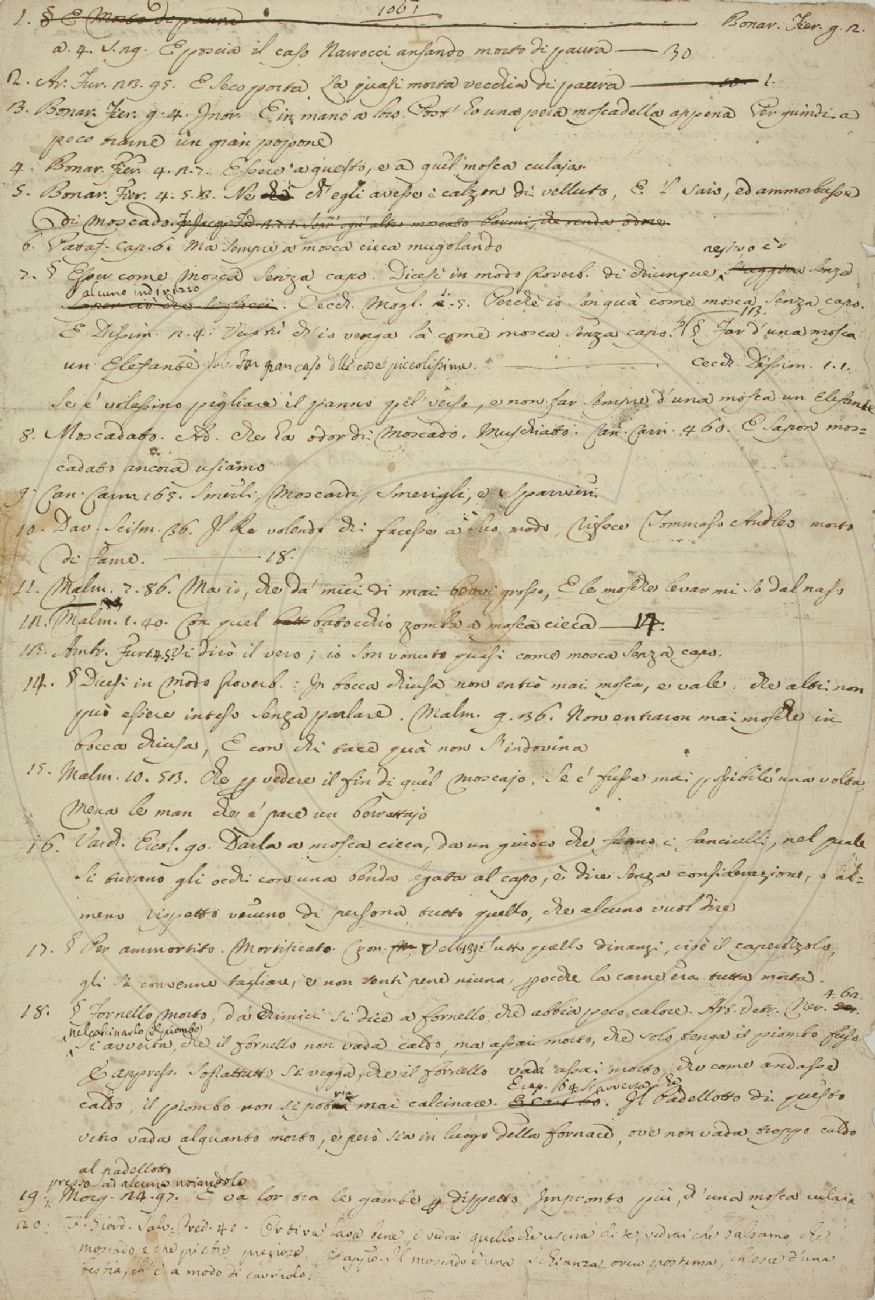 1061
1. § E Morto di paura Bonar. Fier. g. 2.
a. 4. s. 29. E poscia il caso Narrocci ansando morto di paura — 30
2. Ar. Fur. 23. 95. E seco porta La quasi morta vecchia di paura — 1.
3. Bonar. Fier. g. 4. Intr. E in mano a loro Port' ho una pera moscadella appena Per quindi a
poco trarne un gran popone
4. Bonar. Fier. 4. 2. 7. Essere a questo, e a quel mosca culaja.
5. Bonar. Fier. 4. 5. 3. Nè ch' egli avesse i calzon di velluto, E 'l saio, ed ammorbasse
di moscado.
6. Pataf. cap. 6. Ma sempre a mosca cieca mugolando
7. § Esser come mosca senza capo. Dicesi in modo Proverb. di chiunque senza
alcuno indirizzo Cecch. Mogl. 5. Perchè io son quà come mosca senza capo.
E Dissim. 2. 4. Vuo' tu ch' io venga là come mosca senza capo? § Far d' una mosca
un Elefante gran caso delle cose piccolissime. — Cecch. Dissim. 1. 1.
Se e' volessino pigliare il panno pel verso, e non far sempre d' una mosca un Elefante
8. Moscadato. Ad. Che ha odor di Moscado. Muschiato. Can. Carn. 460. E sapon mos=
cadato ancora usiamo
9. Can. Carn. 165. Smerli, Moscardi, Smerigli, e Sparvieri.
10. Dav. Scism. 36. Il Re volendo chi facesse a suo modo, rifece Tommaso Audleo morto
di fame. — 18.
11. Malm. 7. 86. Ma io, che da' miei dì mai bevvi grosso, E le mosche levar mi so dal naso
12. Malm. 1. 40. Con quel batocchio zomba a mosca cieca — 14.
13. Ambr. Furt. 4. 5. Vi dirò il vero; io son venuto quasi come mosca senza capo.
14. § Dicesi in Modo Proverb.: In bocca chiusa non entrò mai mosca, e vale: che altri non
può essere inteso senza parlare. Malm. 9. 36. Non entraron mai mosche in
bocca chiusa, E con chi tace quà non s' indovina
15. Malm. 10. 53. Che p vedere il fin di quel moscajo, Se e' fusse mai possibile una volta
Mena le man che e' pare un berrettajo
16. Varch. Ercol. 90. Darla a mosca cieca, da un giuoco che fanno i fanciulli, nel quale
si turano gli occhi con una benda legata al capo, è dire senza considerazione, o al=
meno rispetto veruno di persona tutto quello, che alcuno vuol dire
17. § Per ammortito. Mortificato. Tutto quello dinanzi, cioè il caperozzolo,
gli si convenne tagliare, e non sentì pene niuna, pocchè la carne era tutta morta.
18. § Fornello Morto, da' chimici si dice a fornello che abbia poco calore. Art. Vetr. Ner. 4. 62.
nel calcinarlo il piombo
si avverta, che il fornello non vada caldo, ma assai morto, che solo tenga il piombo fuso
E appress. Soprattutto si vegga, che il fornello vada assai morto, che come andasse
caldo, il piombo non si potria mai calcinare Il padellotto di questo
vetro vada alquanto morto, e però stia in luogo della fornace, ove non vada troppo caldo
al padellotto
presso ad alcuno noiandolo
19. Morg. 24. 97. E va lor tra le gambe p dispetto Impronto più, ch' una mosca culaia
20. F. Giord. Salv. Pred. 40. Or ti va' lava bene, e vedrai quello che uscirà di te, vedrai che balsamo, che
moscado, e che pietre preziose. E appr. Il moscado è una schianza, ovvero postema, ch' esce d' una
bestia, ch' è a modo di cavriolo.